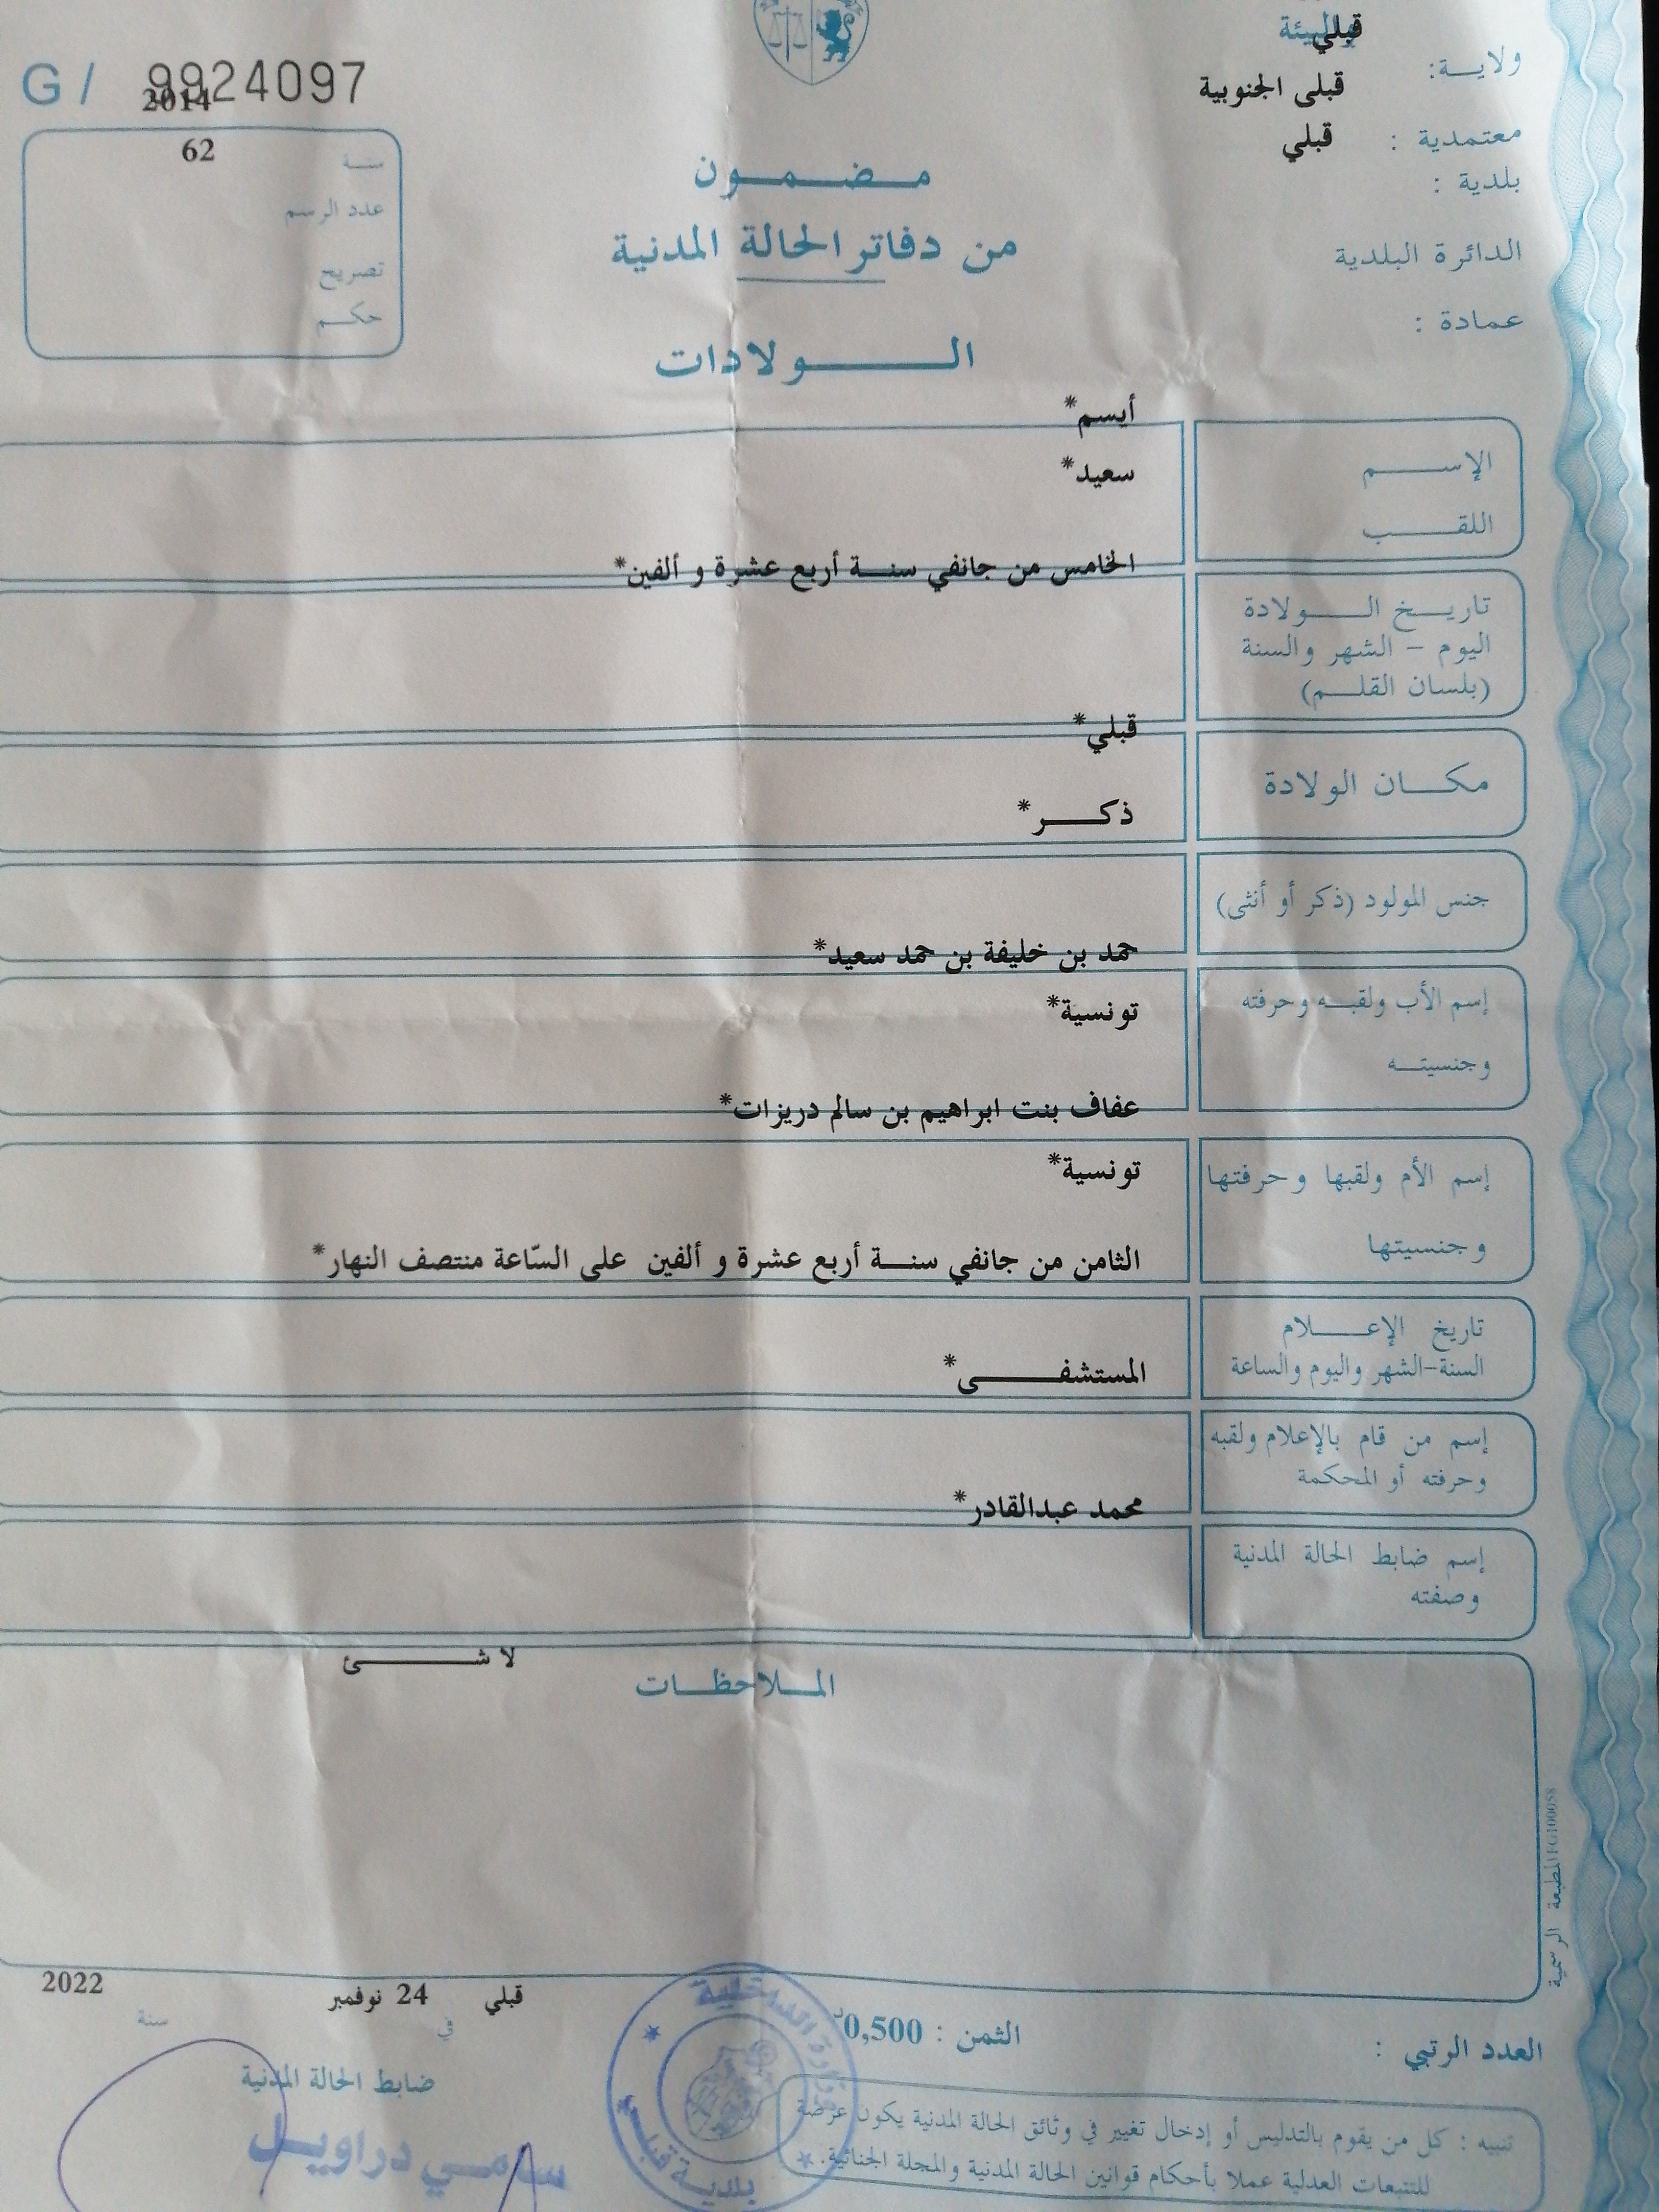 قبلي
ولايـــة:
G/ 9924097
قبلى الجنوبية
2014
معتمدية :
قبلي
62
سنــة
مـــضـــمـــون
بلدية :
عدد الرسم
من دفاتر الحالة المدنية
الدائرة البلدية
تصريح
حكـــم
عمادة :
الــــــولادات
أيسم*
الإســـــم
سعيد*
اللقـــــب
الخامس من جانفي سنـــة أربع عشرة و ألفين*
تاريـــخ الـــــولادة
اليوم – الشهر والسنة
(بلسان القلـــم)
قبلي*
مكـــان الولادة
ذكـــــر*
جنس المولود (ذكر أو أنثى)
حمد بن خليفة بن حمد سعيد*
إسم الأب ولقبـــه وحرفته
تونسية*
وجنسيتـــه
عفاف بنت ابراهيم بن سالم دريزات*
إسم الأم ولقبها وحرفتها
تونسية*
وجنسيتها
الثامن من جانفي سنـــة أربع عشرة و ألفين على السّاعة منتصف النهار*
تاريخ الإعـــــلام
السنة-الشهر واليوم والساعة
المستشفـــــــى*
إسم من قام بالإعلام ولقبه
وحرفته أو المحكمة
محمد عبدالقادر*
إسم ضابط الحالة المدنية
وصفته
لا شـــــــئ
المـــلاحظـــات
المطبعة الرسمية
قبلي 24 نوفمبر 2022
في سنة
العدد الرتبي :
الثمن : 0,500د
ضابط الحالة المدنية
سامي دراويل
وزارة الداخلية
بلدية قبلي
تنبيه : كل من يقوم بالتدليس أو إدخال تغيير في وثائق الحالة المدنية يكون عرضة
للتتبعات العدلية عملا بأحكام قوانين الحالة المدنية والمجلة الجنائية.